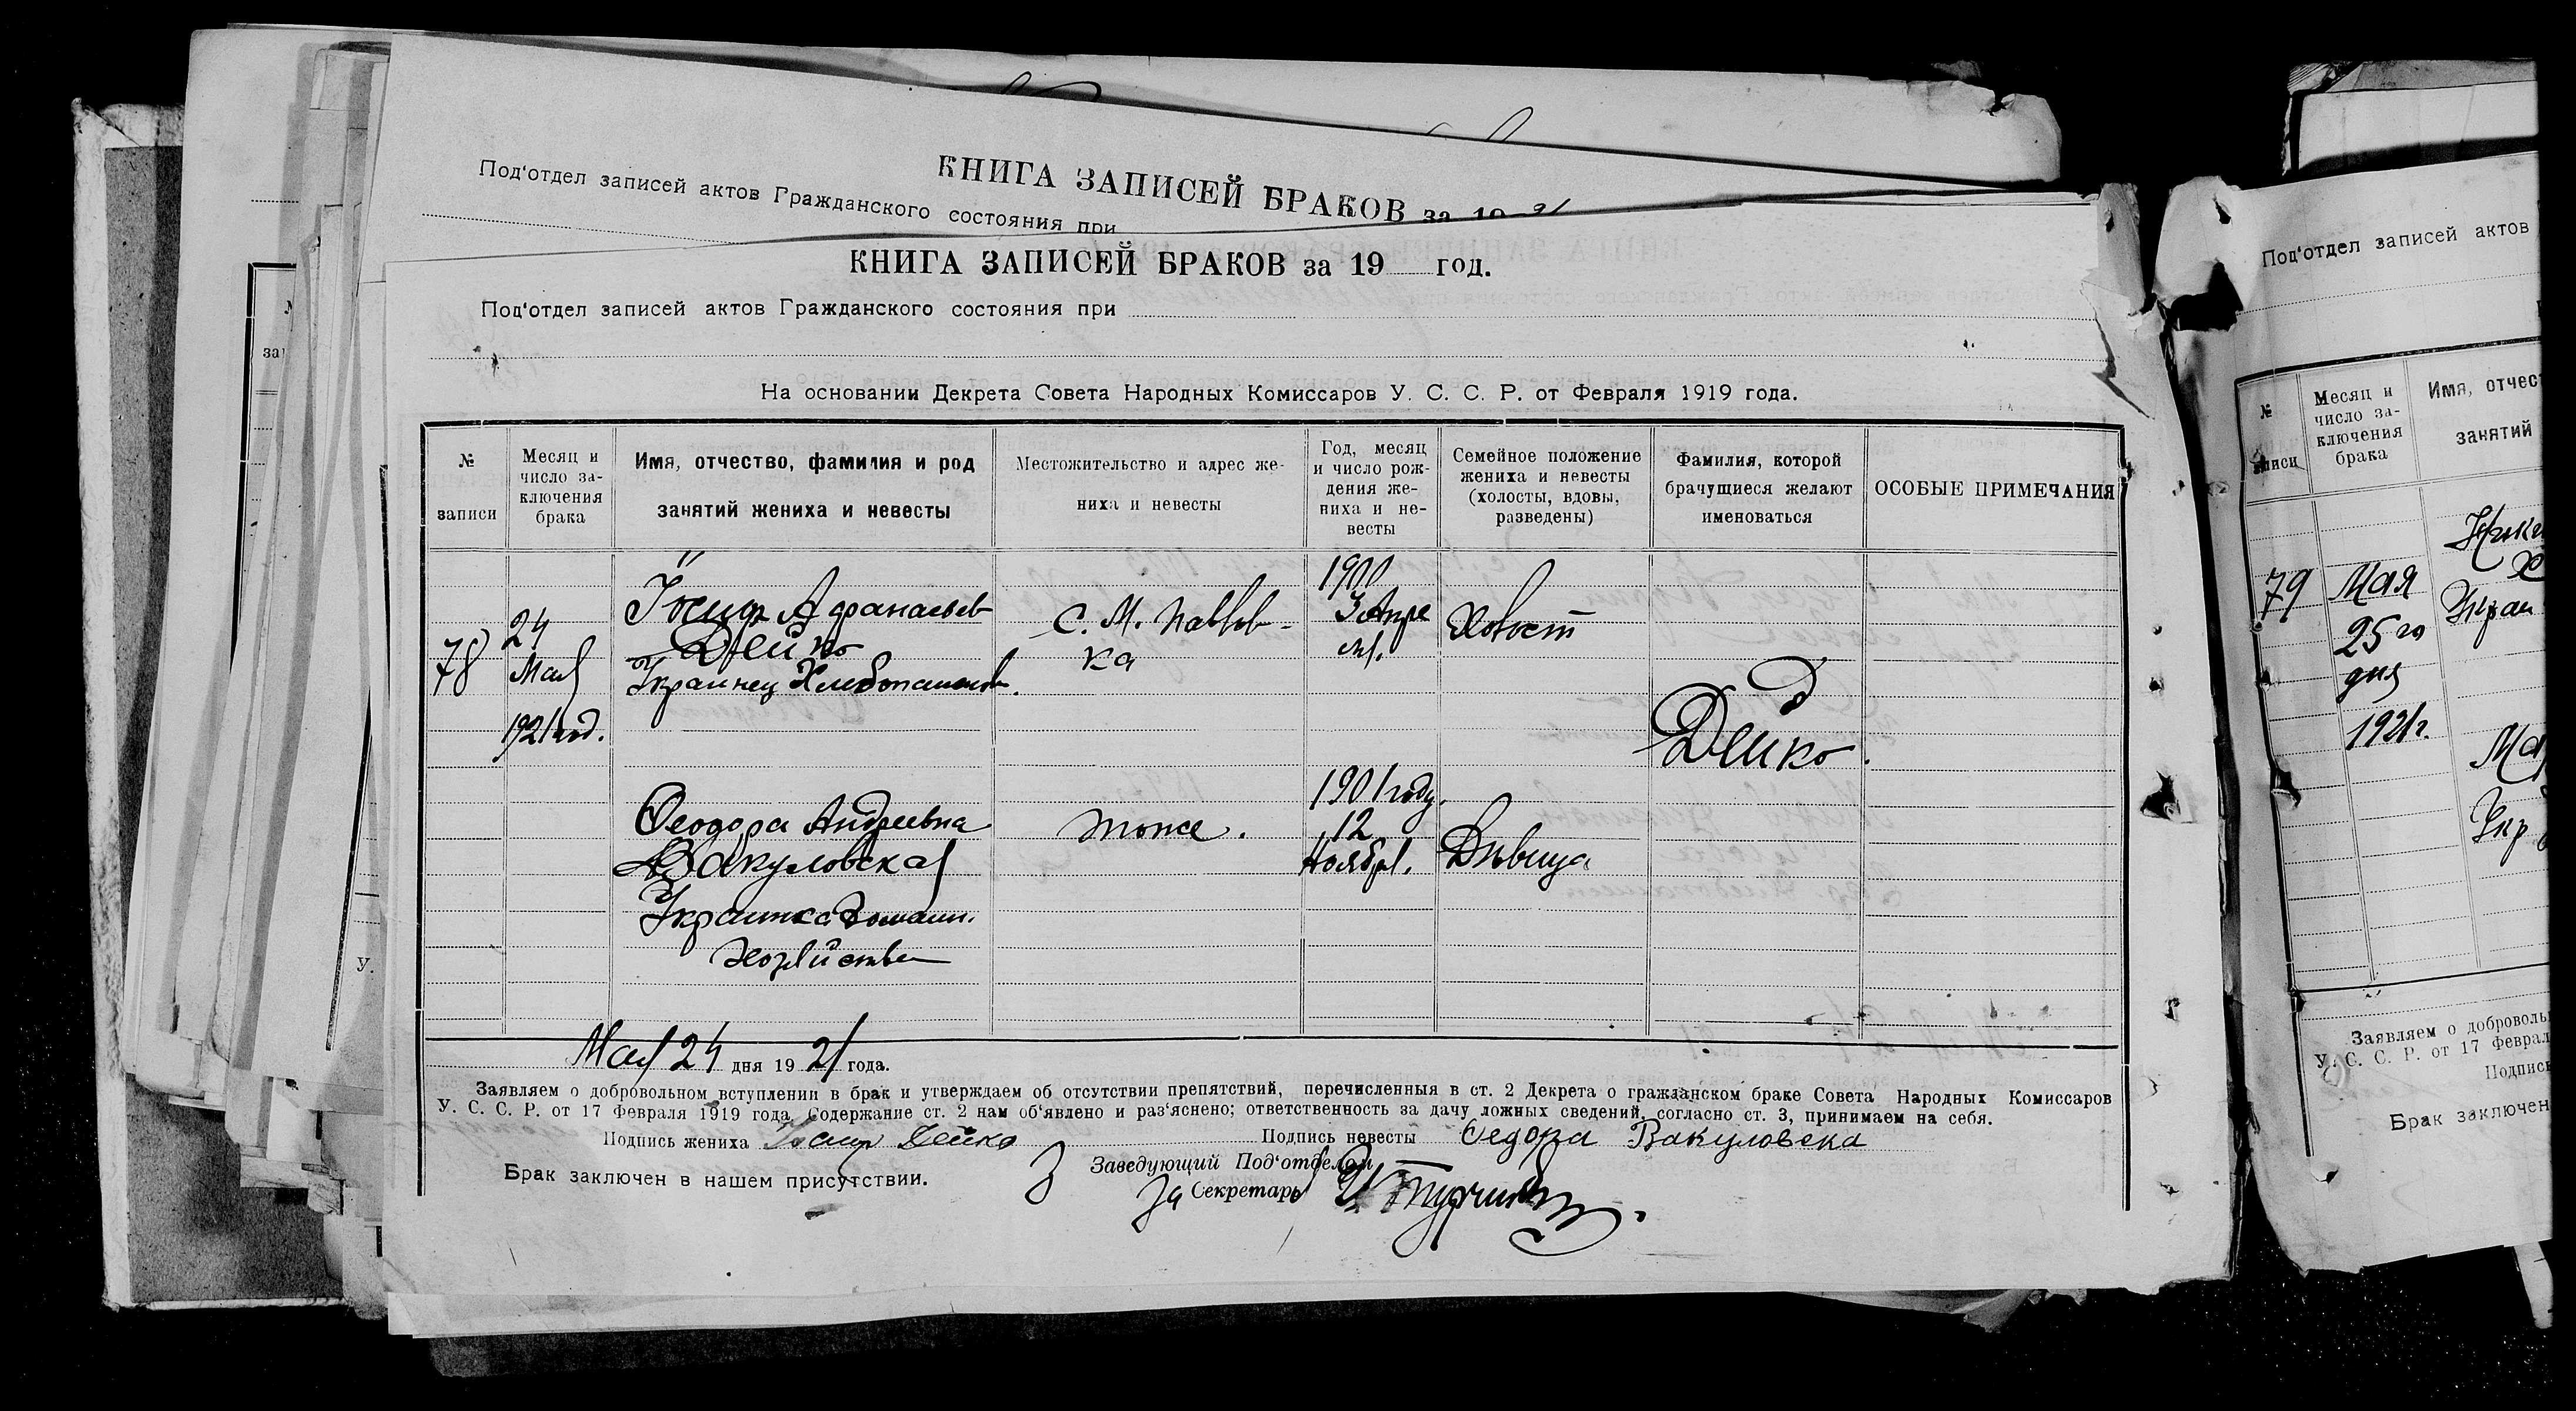 КНИГА ЗАПИСЕЙ БРАКОВ за 19 21
Под'отдел записей актов Гражданского состояния при
КНИГА ЗАПИСЕЙ БРАКОВ за 19 год.
Под'отдел записей актов Гражданского состояния при
На основании Декрета Совета Народных Комиссаров У. С. С. Р. от Февраля 1919 года.
№ записи
Месяц и число заключения брака
Имя, отчество, фамилия и род занятий жениха и невесты
Местожительство и адрес жениха и невесты
Год, месяц и число рождения жениха и невесты
Семейное положение жениха и невесты (холосты, вдовы, разведены)
Фамилия, которой брачущиеся желают именоваться
ОСОБЫЕ ПРИМЕЧАНИЯ
78
24
Мая
1921 год.
Іосиф Афанасьев
Дейко
Украинец Хлебопашество.
С. М. Павлов-
ка
1900
3 Апре
ля.
Холост
Дейко.
Феодора Андреевна
Вакуловская
Украинка Домашн.
Хозяйство
тоже.
1901 году.
12
Ноября.
Дѣвица
Мая 24 дня 19 21 года.
Заявляем о добровольном вступлении в брак и утверждаем об отсутствии препятствий, перечисленныя в ст. 2 Декрета о гражданском браке Совета Народных Комиссаров
У. С. С. Р. от 17 Февраля 1919 года. Содержание ст. 2 нам об'явлено и раз'яснено; ответственность за дачу ложных сведений, согласно ст. 3, принимаем на себя.
Подпись жениха Иосиф Дейко Подпись невесты Федора Вакуловска
Брак заключен в нашем присутствии.
Заведующий Под'отделом
За Секретарь
Под'отдел записей актов
№ записи
Месяц и число заключения брака
Имя, отчес
занятий
79
Мая
25го
дня
1921г.
Украи
Укр
Заявляем о доброволь
У. С. С. Р. от 17 Феврал
Подпись
Брак заключен